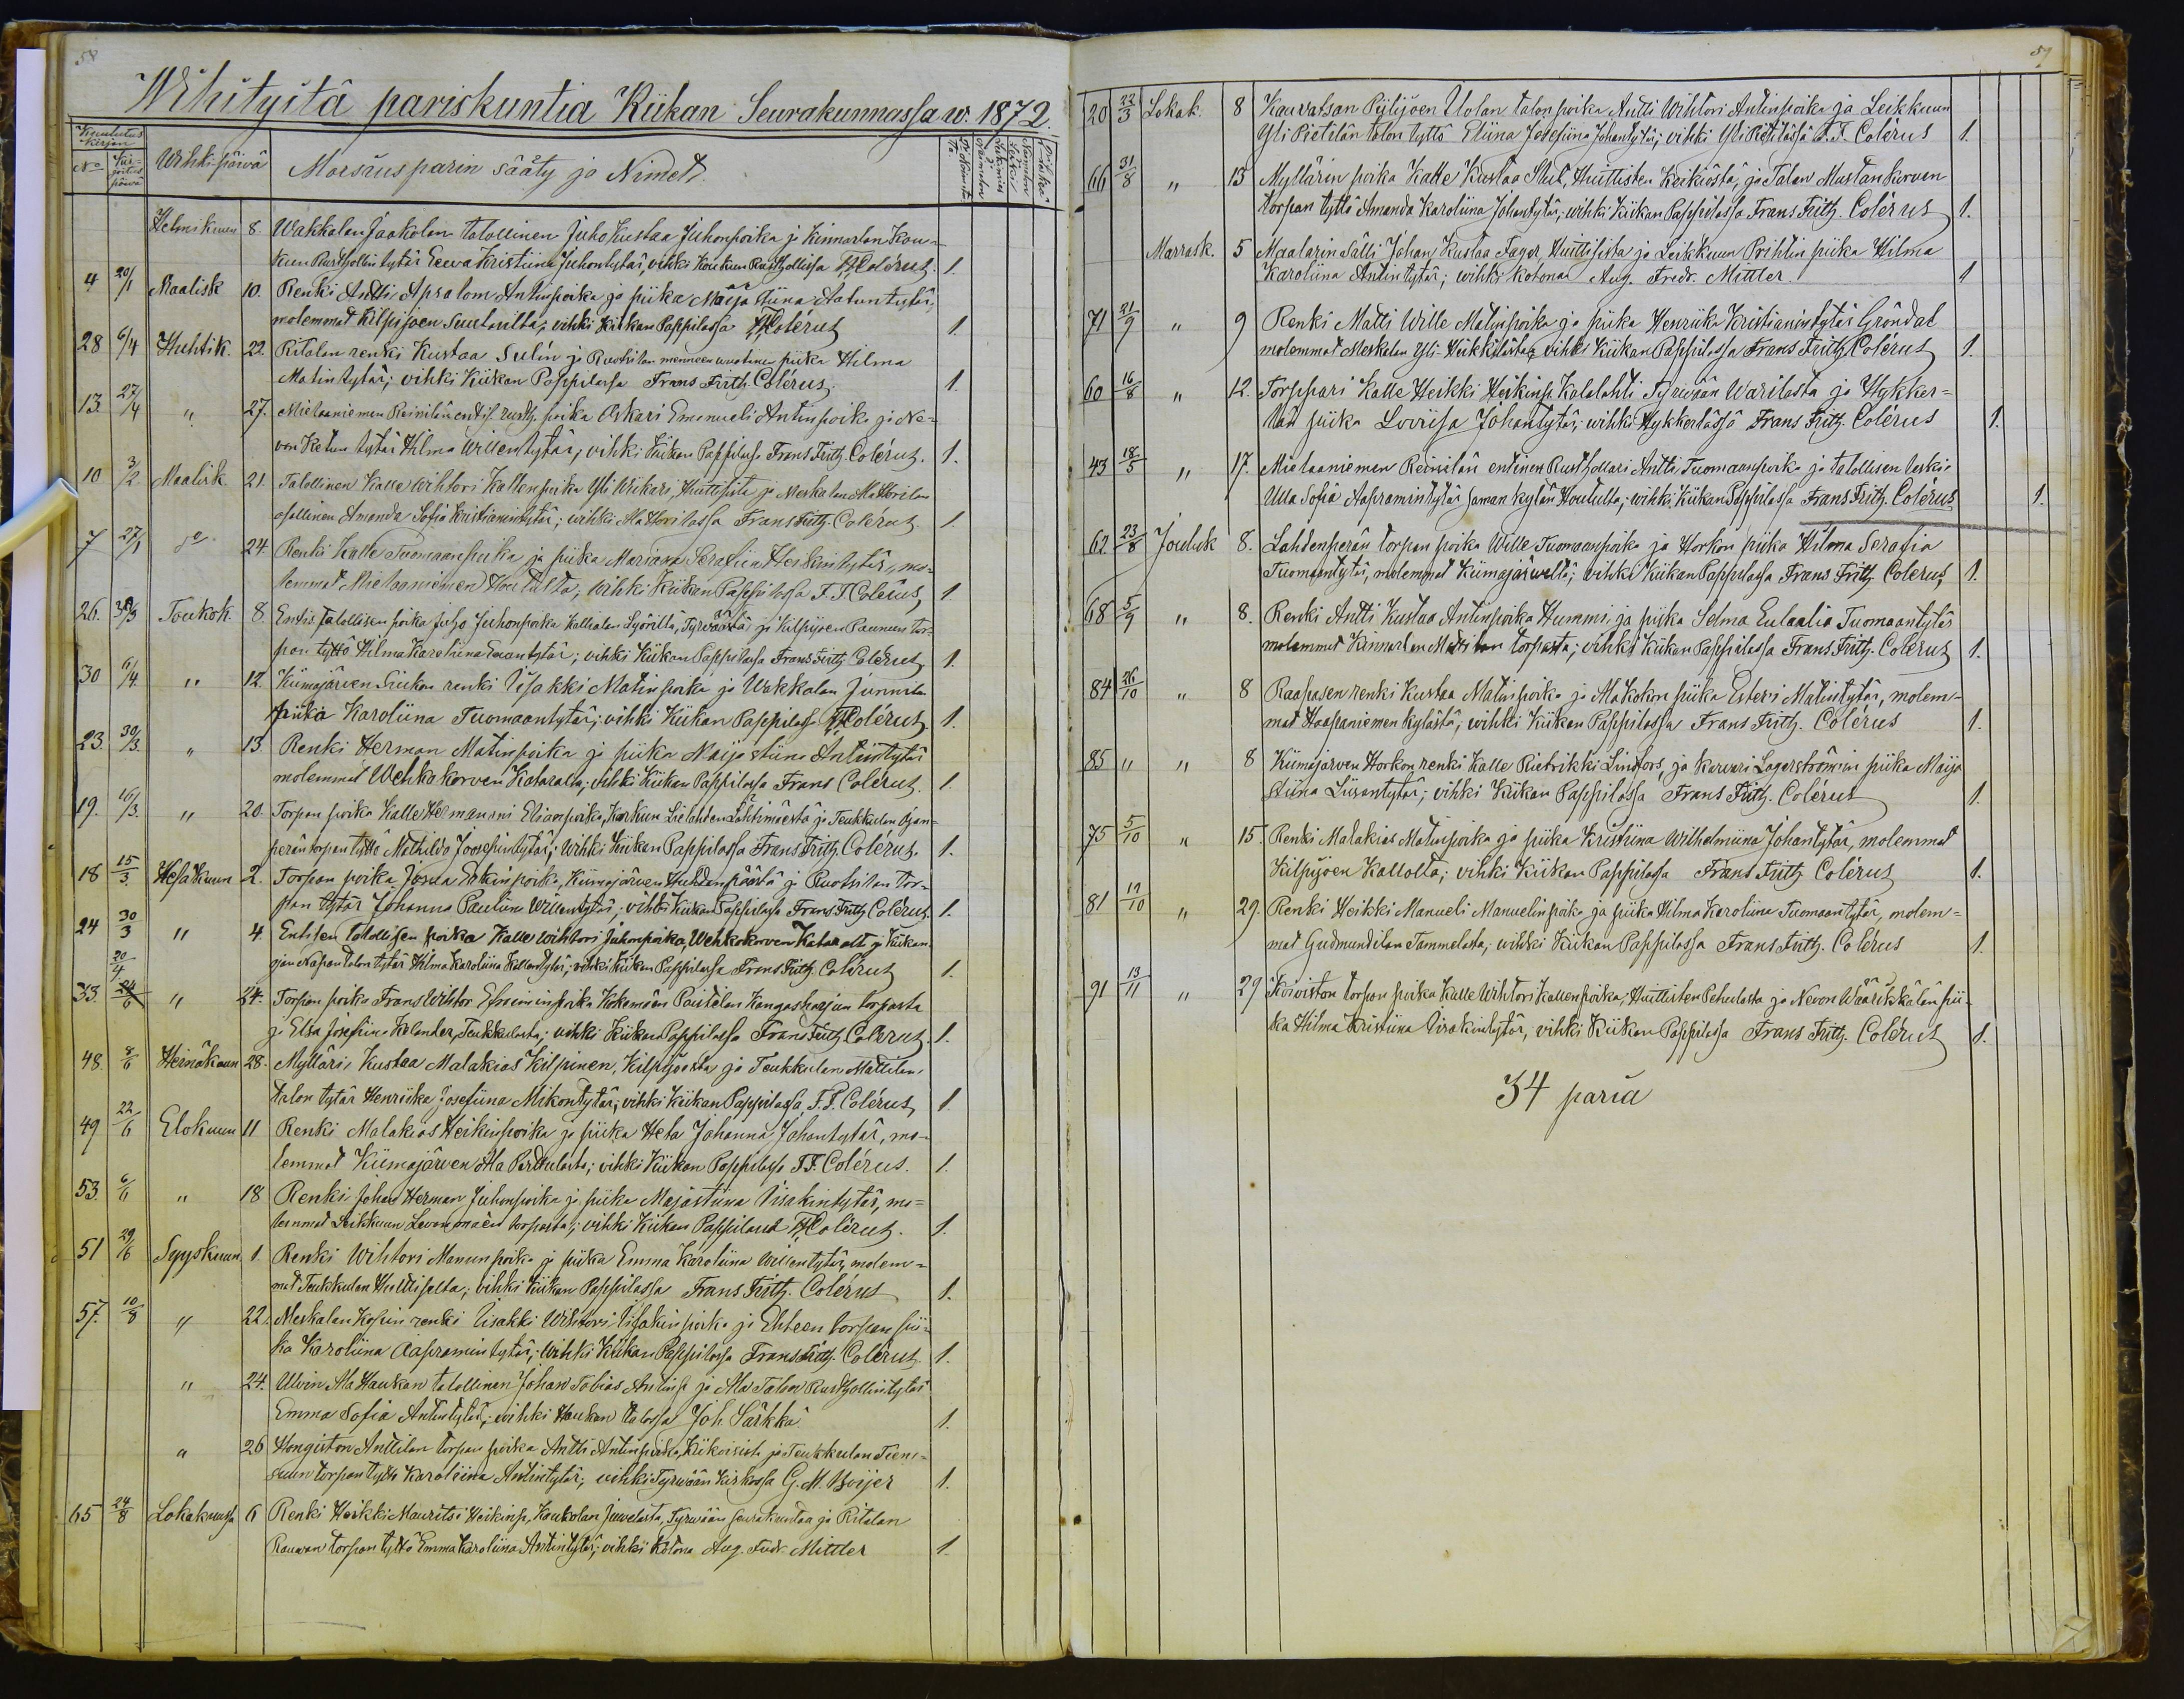 58
Wihityitä pariskuntia Kiikan Seurakunnassa w. 1872.
Kuulutus Kirjan
No Kirjoitus päivä Wihki-päivä Morsiusparin sääty ja Nimet.
Helmikuun 8. Wakkalan Jaakolan talollinen Juho Kustaa Juhonpoika ja Kinnarlan Kou-
kun Rusthollin tytär Eeva Kristiina Juhontytär, vihki Koukun Rusthollissa F.F. Colérus. 1.
4 20/1 Maalisk 10. Renki Antti Apsalom Antinpoika ja piika Maija Stiina Aatuntytär,
molemmat Kilpijoen Suutarilta; vihki Kiikan Pappilassa F.F. Colérus 1.
28 6/4 Huhtik. 22. Ritalan renki Kustaa Sulin ja Ruotsilan menneen vuotinen piika Hilma
Matintytär; vihki Kiikan Pappilassa Frans Frith. Colérus. 1.
13. 27/4 " 27. Mielaaniemen Reinilän entis. rusth. poika Oskari Emanueli Antinpoika ja Ne-
von Ketun tytär Hilma Willentytär, vihki Kiikan Pappilassa Frans Frith. Colérus. 1.
10 3/2 Maalisk. 21. Talollinen Kalle Wihtori Kallenpoika Yli Wikari, Huittisista ja Meskalan Ala Horilan
asallinen Amanda Sofia Kristianintytär; vihki Ala Horilassa Frans Frith. Colérus. 1.
7 27/1 " 24. Renki Kalle Tuomaanpoika ja piika Mariana Serafiia Heikintytär, mo-
lemmat Mielaaniemen Houtulta; vihki Kiikan Pappilassa F. F. Colérus, 1.
26. 30/3 Toukok. 8. Entis. talollisen poika Juho Juhonpoika Kallialan Syörilta, Tyrväästä ja Kilpijoen Paunun tor-
pan tyttö Hilma Karoliina Eenontytär; vihki Kiikan Pappilassa Frans Frith. Colérus 1.
30 6/4 " 12. Kiimajärven Siukon renki Iisakki Matinpoika ja Wakkalan Junnila
piika Karoliina Tuomaantytär; vihki Kiikan Pappilassa F.F. Colérus. 1.
23. 30/3 " 13 Renki Herman Matinpoika ja piika Maija Stiina Antintytär
molemmat Wehkakorven Kataralta; vihki Kiikan Pappilassa Frans Colérus. 1.
19. 16/3 " 20. Torpan poika Kalle Hermanni Elianpoika, Karkun Lielahden Lähtimäestä ja Teukkulan Ojan-
perän torpan tyttö Mathilda Joosepintytär; vihki Kiikan Pappilassa Frans Frith. Colérus. 1.
18 15/3 Kesäkuun 2. Torpan poika Josua Erkinpoika, Kiimajärven Huhdanpäästä ja Ruotsilan tor-
pan tytär Johanna Pauliina Willentytär; vihki Kiikan Pappilassa Frans Frith. Colérus. 1.
24 30/3 " 4. Entisen talollisen poika Kalle Wihtori Juhonpoika, Wehkakorven Kataralt ja Kiikan-
ojan Napan talon tytär Hilma Karoliina Kallentytär; vihki Kiikan Pappilassa Frans Frith. Colérus 1.
33. 20/4 24/6 " 24. Torpan poika Frans Wihtor Efraiminpoika Kokemäen Paistilan Kangasharjun torpasta
ja Elsa Josefiina Kalander, Teukkulasta; vihki Kiikan Pappilassa Frans Frith. Colérus. 1.
48. 8/6 Heinäkuun 28. Myllärin Kustaa Malakias Kilpinen, Kilpijoesta ja Teukkulan Mattilan
talon tytär Henriika Josefiina Mikontytär; vihki Kiikan Pappilassa F. F. Colérus, 1.
49 22/6 Elokuun 11 Renki Malakias Heikinpoika ja piika Heta Johanna Johantytär, mo-
lemmat Kiimajärven Ala Perttulasta; vihki Kiikan Pappilassa F.F. Colérus. 1.
53. 6/6 " 18 Renki Johan Herman Juhonpoika ja piika Majastiina Iisakintytär, mo-
lemmat Leikkuun Levonmäen torpasta; vihki Kiikan Pappilassa F.F. Colérus. 1.
51 29/6 Syyskuun 1. Renki Wihtori Manunpoika ja piika Emma Karoliina Willentytär, molem-
mat Teukkulan Huittisalta; vihki Kiikan Pappilassa Frans Frith. Colérus 1.
57. 10/8 " 22. Meskalan Kapin renki Iisakki Wihtori Iisakinpoika ja Ehteen torpan pii-
ka Karoliina Aapramintytär; vihki Kiikan Pappilassa Frans Frith. Colérus. 1.
" 24. Ulvin Ala Haukan talollinen Johan Tobias Antinp. ja Ala Talon Rusthollintytär
Emma Sofia Antintytär; vihki Haukan talossa Joh. Särkkä 1.
" 26 Hongiston Anttilan torpan poika Antti Antinpoika, Kiikoisista ja Teukkulan Tiens-
suun torpan tyttö Karoliina Antintytär; vihki Tyrvään Kirkossa G. M. Boijer 1.
65 24/8 Lokakuussa 6 Renki Heikki Mauritsi Heikinp., Kaukolan Juvelasta, Tyrvään seurakuntaa ja Ritalan
Rauvan torpan tyttö Emma Karoliina Antintytär; vihki kotona Aug. Fredr. Mittler 1.
59
20 22/3 Lokak. 8 Kauvatsan Piilijoen Uolan talon poika Antti Wihtori Antinpoika ja Leikkuun
Yli Pietilän talon tyttö Eliina Josefiina Johantytär; vihki Yli Pietilässä F. F. Colérus 1.
66 31/8 " 13 Myllärin poika Kalle Kustaa Slut, Huittisten Keikiästä, ja Talan Mustankorven
torpan tyttö Amanda Karoliina Johantytär; vihki Kiikan Pappilassa Frans Frith. Colérus 1.
Marrask. 5 Maalarin Sälli Johan Kustaa Fager, Huittisista ja Leikkuun Prihtin piika Hilma
Karoliina Antintytär; vihki kotonaa Aug. Fredr. Mittler. 1
71 21/9 " 9 Renki Matti Wille Matinpoika ja piika Henriika Kristianintytär Gröndal
molemmat Meskalan Yli-Heikkilästä; vihki Kiikan Pappilassa Frans Frith. Colérus 1.
60 16/8 " 12. Torppari Kalle Heikki Heikinp. Kalalahti Tyrvään Warilasta ja Hykker-
län piika Loviisa Johantytär; vihki Hykkerlässä Frans Frith. Colérus 1.
43 18/5 " 17. Mielaaniemen Reinilän entinen Rusthollari Antti Tuomaanpoika ja talollisen leski
Ulla Sofia Aapramintytär saman kylän Houtulta; vihki Kiikan Pappilassa Frans Frith. Colérus 1.
62 23/8 Jouluk 8. Lahdenperän torpan poika Wille Tuomaanpoika ja Horkon piika Hilma Serafia
Tuomaantytär, molemmat Kiimajärveltä; vihki Kiikan Pappilassa Frans Frith. Colérus 1.
68 5/9 " 8. Renki Antti Kustaa Antinpoika Hummi, ja piika Selma Eulaalia Tuomaantytär
molemmat Kinnarlan Mattilan torpasta; vihki Kiikan Pappilassa Frans Frith. Colérus 1.
84 26/10 " 8 Raapasen renki Kustaa Matinpoika ja Makokon piika Esteri Matintytär, molem-
mat Haapaniemen kylästä; vihki Kiikan Pappilassa Frans Frith. Colérus 1.
85 " " 8 Kiimajärven Horkon renki Kalle Rietrikki Lindfors, ja karvari Lagerströmin piika Maija
Stiina Liisantytär; vihki Kiikan Pappilassa Frans Frith. Colérus 1.
75 5/10 " 15 Renki Malakias Matinpoika ja piika Kristiina Wilhelmiina Johantytär, molemmat
Kilpijoen Kallolta; vihki Kiikan Pappilassa Frans Frith. Colérus 1.
81 19/10 " 29. Renki Heikki Manueli Manuelinpoika ja piika Hilma Karoliina Tuomaantytär, molem-
mat Gudmundilan Tammelasta; vihki Kiikan Pappilassa Frans Frith. Colérus 1.
91 13/11 " 29 Koiviston torpan poika Kalle Wihtori Kallenpoika, Huittisten Pehulasta ja Nevon Wäärikkälän pii-
ka Hilma Kristiina Iisakintytär, vihki Kiikan Pappilassa Frans Frith. Colérus 1.
34 paria